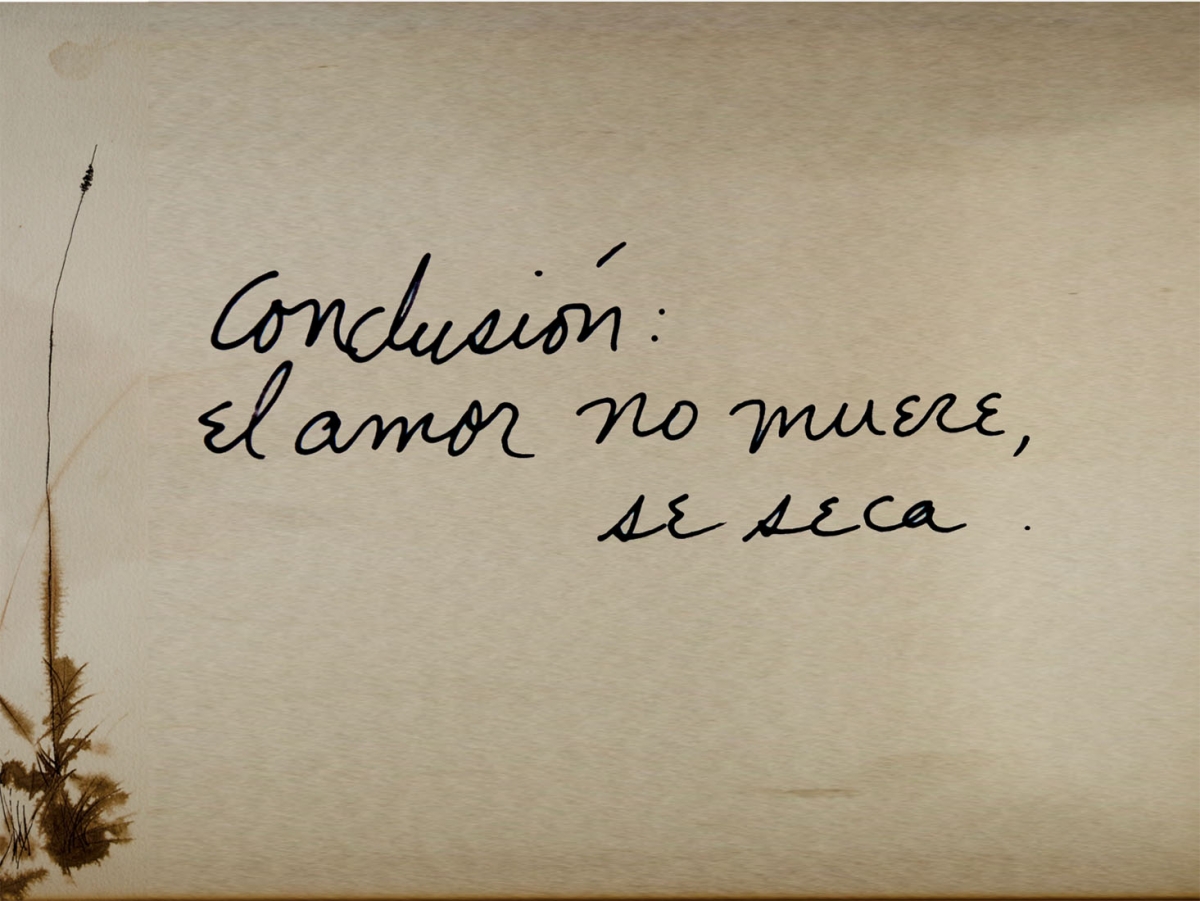 Conclusión:
El amor no muere,
se seca .